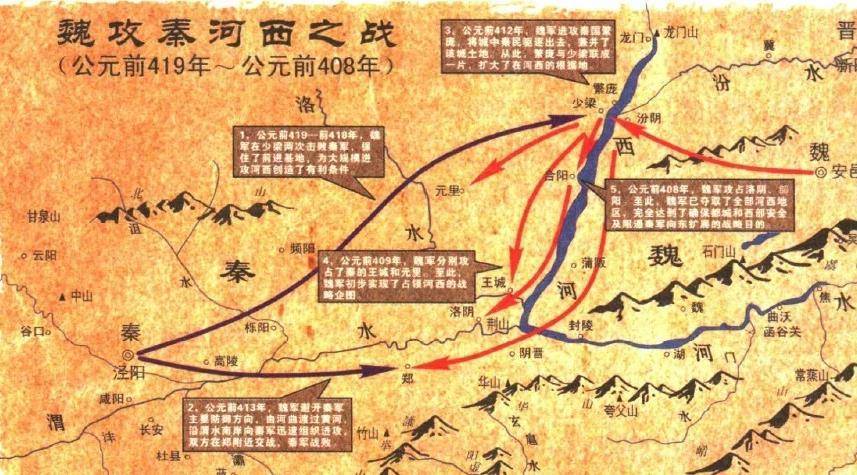 魏攻秦河西之战
(公元前419年～公元前408年)
3、公元前412年，魏军进攻秦国繁
庞，将城中秦民驱逐出去，兼并了
该城土地。从此，繁庞与少梁联成
一片，扩大了在河西的根据地。
龙门
龙门山
晋
冀
汾
水
新
洛
繁庞
少梁
汾阴
1、公元前419—前418年，魏
军在少梁两次击败秦军，保
住了前进基地，为大规模进
攻河西创造了有利条件。
西
魏
安邑
合阳
元里
5、公元前408年，魏军攻占洛阴、郃
阳。至此，魏军已夺取了全部河西地
区，完全达到了确保都城和西部安全
及阻遏秦军向东扩展的战略目的。
北
山
甘泉山
云阳
水
频阳
水
秦
4、公元前409年，魏军分别攻
占了秦的王城和元里。至此，
魏军初步实现了占领河西的战
略企图。
魏
石门山
蒲阪
中山
王城
河
洛阴
魏
焦
水
曲沃
函谷关
谷口
秦
泾阳
栎阳
水
荆山
封陵
高陵
阴晋
湖
河
郑
华山
常蒸山
咸阳
2、公元前413年，魏军避开秦军
主要防御方向，由河曲渡过黄河，
沿渭水南岸向秦军迅速组织进攻，
双方在郑附近交战，秦军战败。
夸父山
渭
长安
竹山
水
杜县